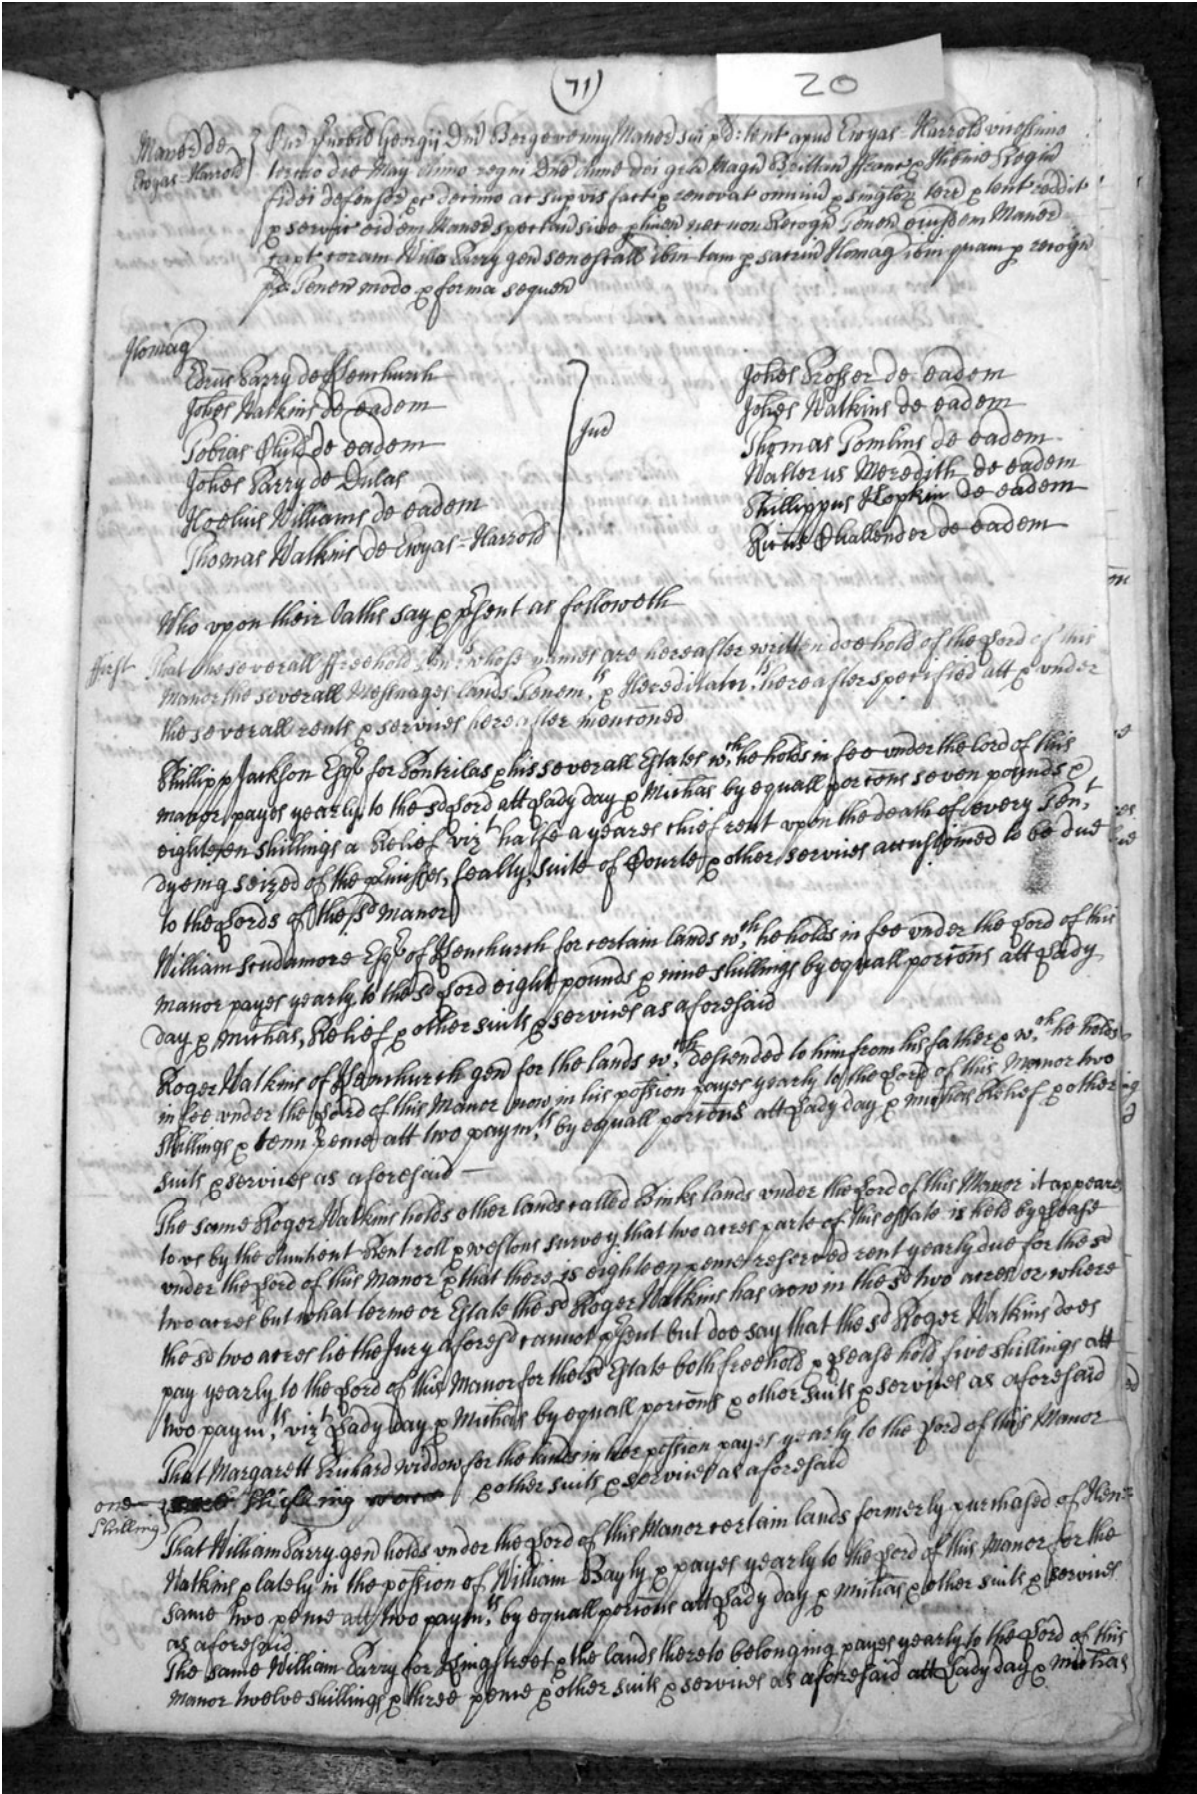 (71)
20
Maner de
Ewyas-Harrold
Cur Prænob Georgij Dnī Bergevenny Manerii sui pd: tent apud Ewyas-Harrold vicessimo
tercio die May Anno regni Dnē Anne dei grā Magn Brittan ffranc & Hibnie Regin
fidei defensor &c decimo ac supvis fact & renovat omniū & singlor terr & tent reddit
& servic eidem Maner spectan sive ptinen nec non Recogn Tenen eiusdem Maner
capt coram Willo Parry gen senescall ibm tam p sacrm Homag ibm quam p recogn
pd Tenen modo & forma sequen
Homag
Edrus Parry de Kenchurch
Johes Watkins de eadem
Tobias de eadem
Johes Parry de Dulas
Hoelius Williams de eadem
Thomas Watkins de Ewyas-Harrold
Jur
Johes Prosser de eadem
Johes Watkins de eadem
Thomas Tomlins de eadem
Walterus Meredith de eadem
Phillippus Hopkin de eadem
Ricus Challender de eadem
Who vpon their Oaths say & psent as followeth
ffirst That the severall ffreehold Ten:ts whose names are hereafter written doe hold of the Lord of this
Manor the severall Messuages lands Tenem:ts & Hereditam:ts hereafter specified att & vnder
the severall rents & services hereafter mencōned
Phillipp Jackson Esqr for Pontrilas & his severall Estates w:ch he holds in fee vnder the lord of this
manor payes yearly to the sd Lord att Lady day & Michas by equall porcōns seven pounds &
eighteen shillings a Relief vizt halfe a yeares chief rent vpon the death of every Ten:t
dyeing seized of the pmisses, fealty, suite of Courte & other services accustomed to be due
to the Lords of the sd manor
William Scudamore Esqr of Kenchurch for certain lands w:ch he holds in fee vnder the Lord of this
manor payes yearly to the sd Lord eight pounds & nine shillings by equall porcōns att Lady
day & Michas, Relief & other suits & services as aforesaid
Roger Watkins of Kenchurch gen for the lands w:ch descended to him from his father & w:ch he holds
in fee vnder the Lord of this Manor now in his possion payes yearly to the Lord of this Manor two
Shillings & tenn pence att two paym:ts by equall porcōns att Lady day & Michas Relief & other
suits & services as aforesaid —
The same Roger Watkins holds other lands called Binks lands vnder the Lord of this Manor it appears
to vs by the Auntient Rent roll & westons survey that two acres parte of this estate is held by Lease
vnder the Lord of this Manor & that there is eighteen pence reserved rent yearly due for the sd
two acres but what terme or Estate the sd Roger Watkins has now in the sd two acres or where
the sd two acres lie the Jury aforesd cannot psent but doe say that the sd Roger Watkins does
pay yearly to the Lord of this Manor for the sd Estate both freehold & Lease hold five shillings att
two paym:ts vizt Lady day & Michas by equall porcōns & other suits & services as aforesaid
That Margarett Prichard widdow for the lands in her possion payes yearly to the Lord of this Manor
one Shilling & other suits & services as aforesaid
That William Parry gen holds vnder the Lord of this Manor certain lands formerly purchased of Hen:
Watkins & lately in the possion of William Bayly & payes yearly to the Lord of this Manor for the
same two pence att two paym:ts by equall porcōns att Lady day & Michas & other suits & services
as aforesaid
The same William Parry for Kingstreet & the lands thereto belonging payes yearly to the Lord of this
Manor twelve shillings & three pence & other suits & services as aforesaid att Lady day & Michas